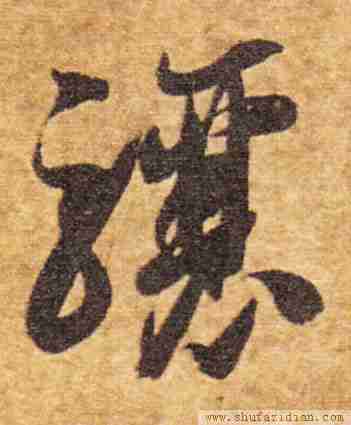 驤
www.shufazidian.com